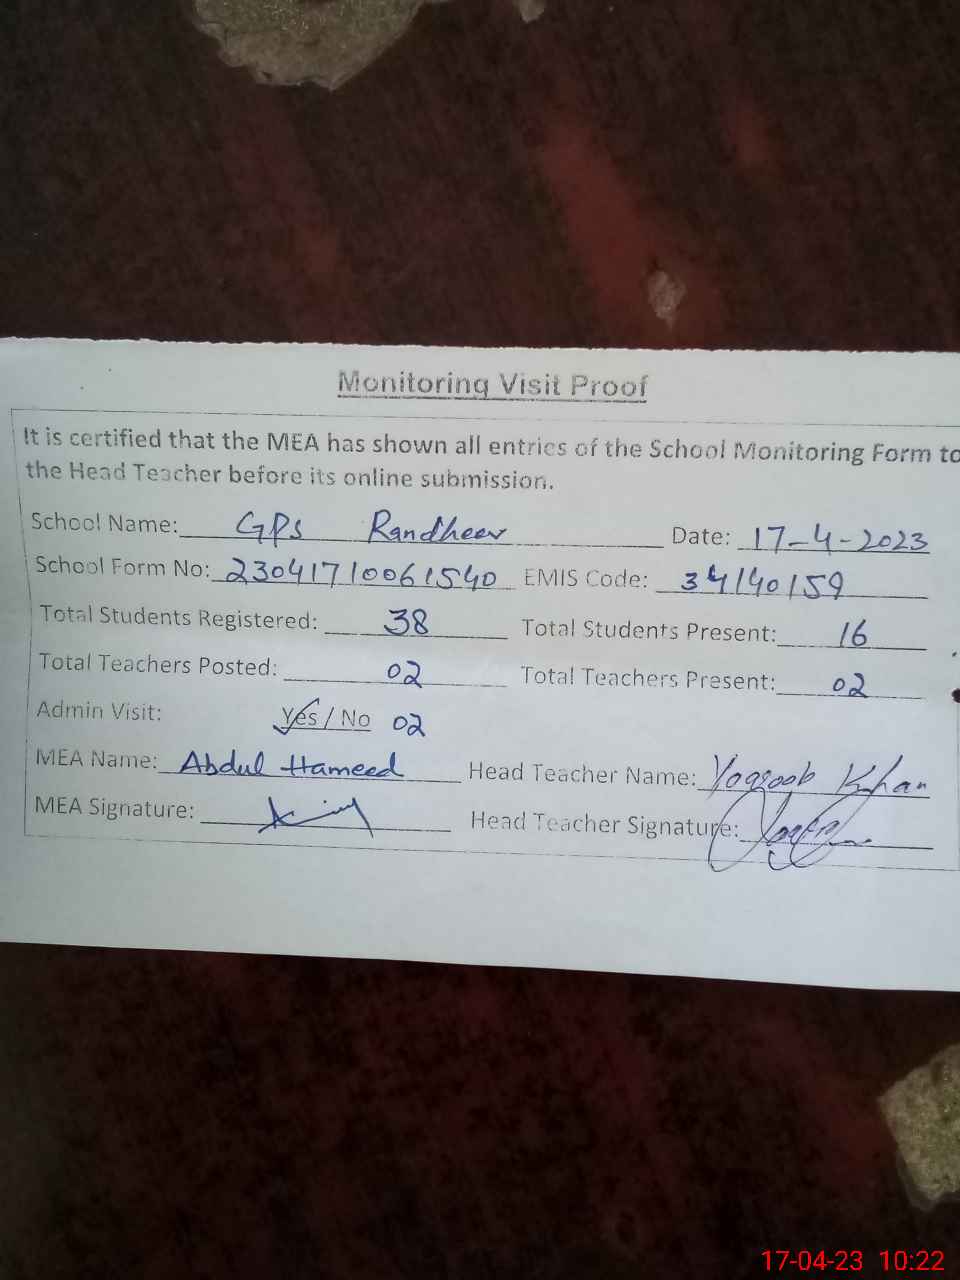 Monitoring Visit Proof
It is certified that the MEA has shown all entries of the School Monitoring Form to
the Head Teacher before its online submission.
School Name: GPS Randheer Date: 17-4-2023
School Form No: 23041710061540 EMIS Code: 34140159
Total Students Registered: 38 Total Students Present: 16
Total Teachers Posted: 02 Total Teachers Present: 02
Admin Visit: Yes / No 02
MEA Name: Abdul Hameed Head Teacher Name: Yaqoob Khan
MEA Signature: Head Teacher Signature:
17-04-23 10:22